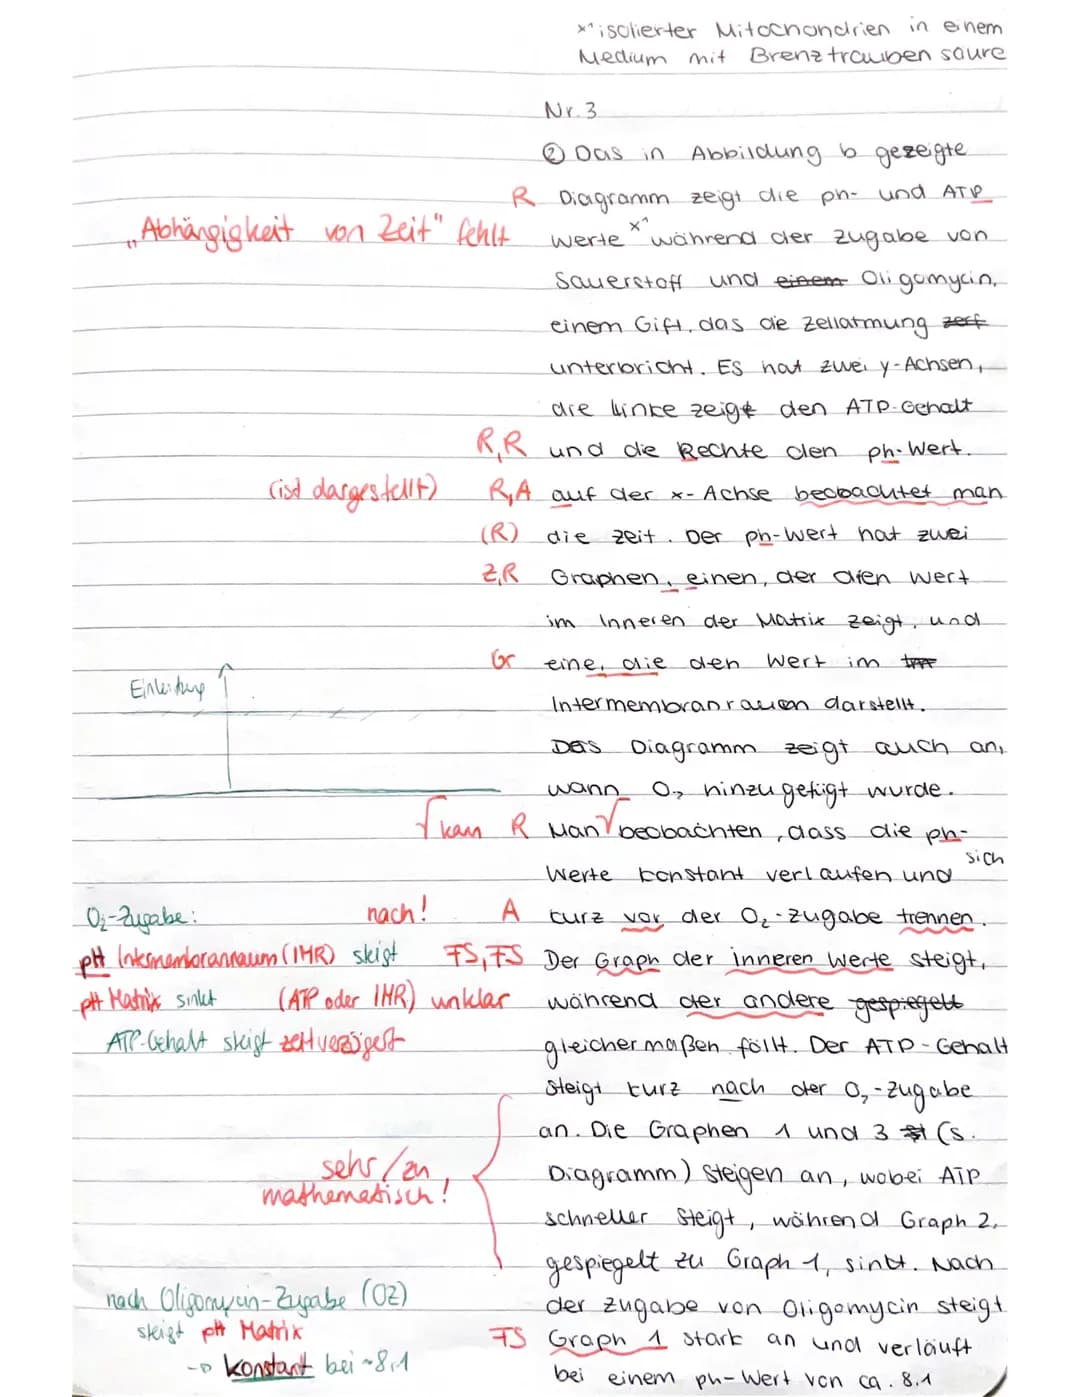 x¹ isolierter Mitochondrien in einem
Medium mit Brenztrauben säure
Nr. 3
② Das in Abbildung b gezeigte
R Diagramm zeigt die ph- und ATP
"Abhängigkeit von Zeit" fehlt werte x¹ während der zugabe von
Sauerstoff und einem Oligomycin,
einem Gift, das die Zellatmung zerf
unterbricht. Es hat zwei y-Achsen,
die linke zeigt den ATP-Gehalt
R,R und die Rechte den ph-Wert.
(ist dargestellt) R,A auf der x-Achse beobachtet man
(R) die zeit. Der ph-Wert hat zwei
Z,R Graphen, einen, der den Wert
im Inneren der Matrix zeigt, und
Gr eine, die den Wert im
Einleitung
Intermembranraum darstellt.
Das Diagramm zeigt auch an,
wann O₂ hinzugefügt wurde.
√ kann R Man √ beobachten, dass die ph-
sich
Werte konstant verlaufen und
O₂-Zugabe: nach! A kurz vor der O₂-zugabe trennen.
pH Intermembranraum (IMR) steigt FS, FS Der Graph der inneren Werte steigt,
pH Matrix sinkt (ATP oder IMR) unklar während der andere gespiegelt
ATP-Gehalt steigt zeitverzögert gleichermaßen fällt. Der ATP-Gehalt
steigt kurz nach der O₂-Zugabe
an. Die Graphen 1 und 3 (s.
sehr/zu Diagramm) steigen an, wobei ATP
mathematisch! schneller steigt, während Graph 2,
gespiegelt zu Graph 1, sinkt. Nach
nach Oligomycin-Zugabe (OZ) der zugabe von Oligomycin steigt
steigt pH Matrix FS Graph 1 stark an und verläuft
→ konstant bei ~8,1 bei einem ph-Wert von ca. 8.1